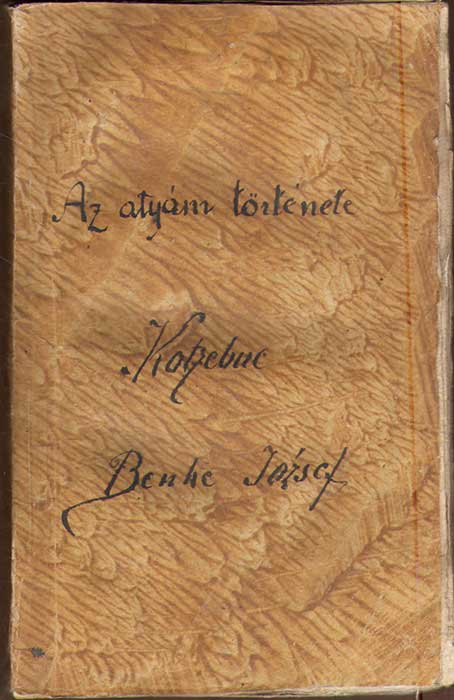 Az atyám története
Kotzebue
Benke József